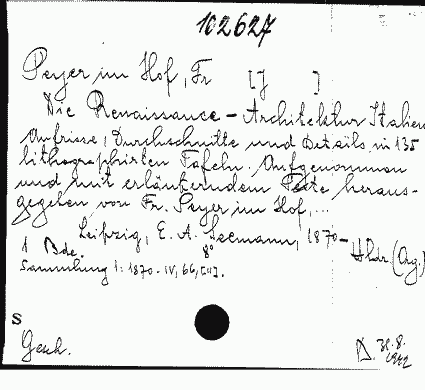 102627
Peyer im Hof, Fr [J ]
Die Renaissance-Architektur Italiens
Aufrisse, Durchschnitte und Details in 135
lithographirten Tafeln. Aufgenommen
und mit erläuterndem Texte heraus-
gegeben von Fr. Peyer im Hof,...
Leipzig, E. A. Seemann, 1870-
1 Bde. 8° Hldr. (Org.)
Sammlung 1: 1870.-IV, 66, [4].
S
Gesch.
D. 31.8.
1942